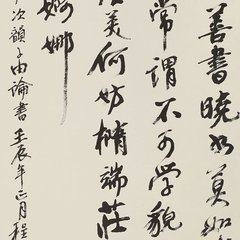 善書曉書莫如
常謂不可學貌
美何妨橢端莊
婀娜
次韻子由論書 壬辰年正月 程